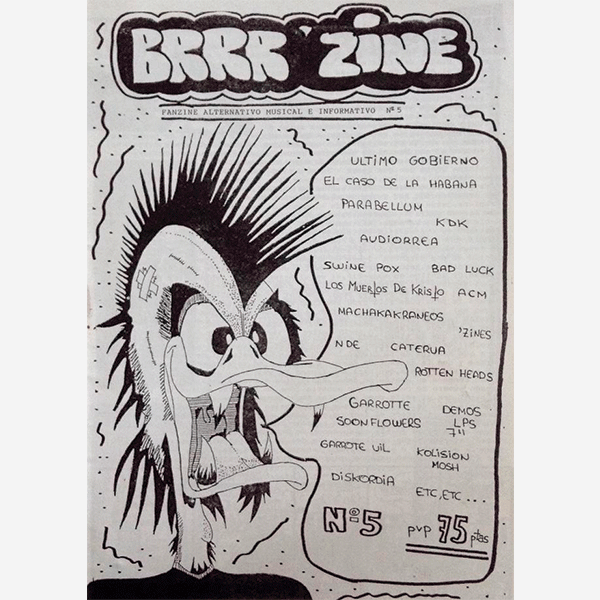 BRRR'ZINE
FANZINE ALTERNATIVO MUSICAL E INFORMATIVO Nº 5
ULTIMO GOBIERNO
EL CASO DE LA HABANA
PARABELLUM
KDK
AUDIORREA
SWINE POX BAD LUCK
LOS MUERTOS DE KRISTO ACM
MACHAKAKRANEOS
'ZINES
N DE CATERUA
ROTTEN HEADS
GARROTTE DEMOS
SOON FLOWERS LPS
7"
GARROTE VIL KOLISION
MOSH
DISKORDIA
ETC, ETC ...
Nº5 PVP 75 ptas